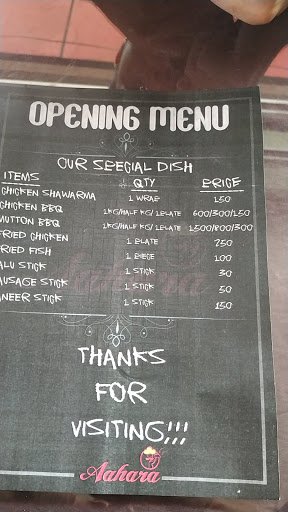 OPENING MENU
OUR SPECIAL DISH
ITEMS QTY PRICE
CHICKEN SHAWARMA 1 WRAP 150
CHICKEN BBQ 1KG/HALF KG/ 1PLATE 600/300/150
MUTTON BBQ 1KG/HALF KG/ 1PLATE 1500/800/300
FRIED CHICKEN 1 PLATE 250
FRIED FISH 1 PIECE 100
ALU STICK 1 STICK 30
AUSAGE STICK 1 STICK 50
ANEER STICK 1 STICK 150
Aahara
THANKS
FOR
VISITING!!!
Aahara